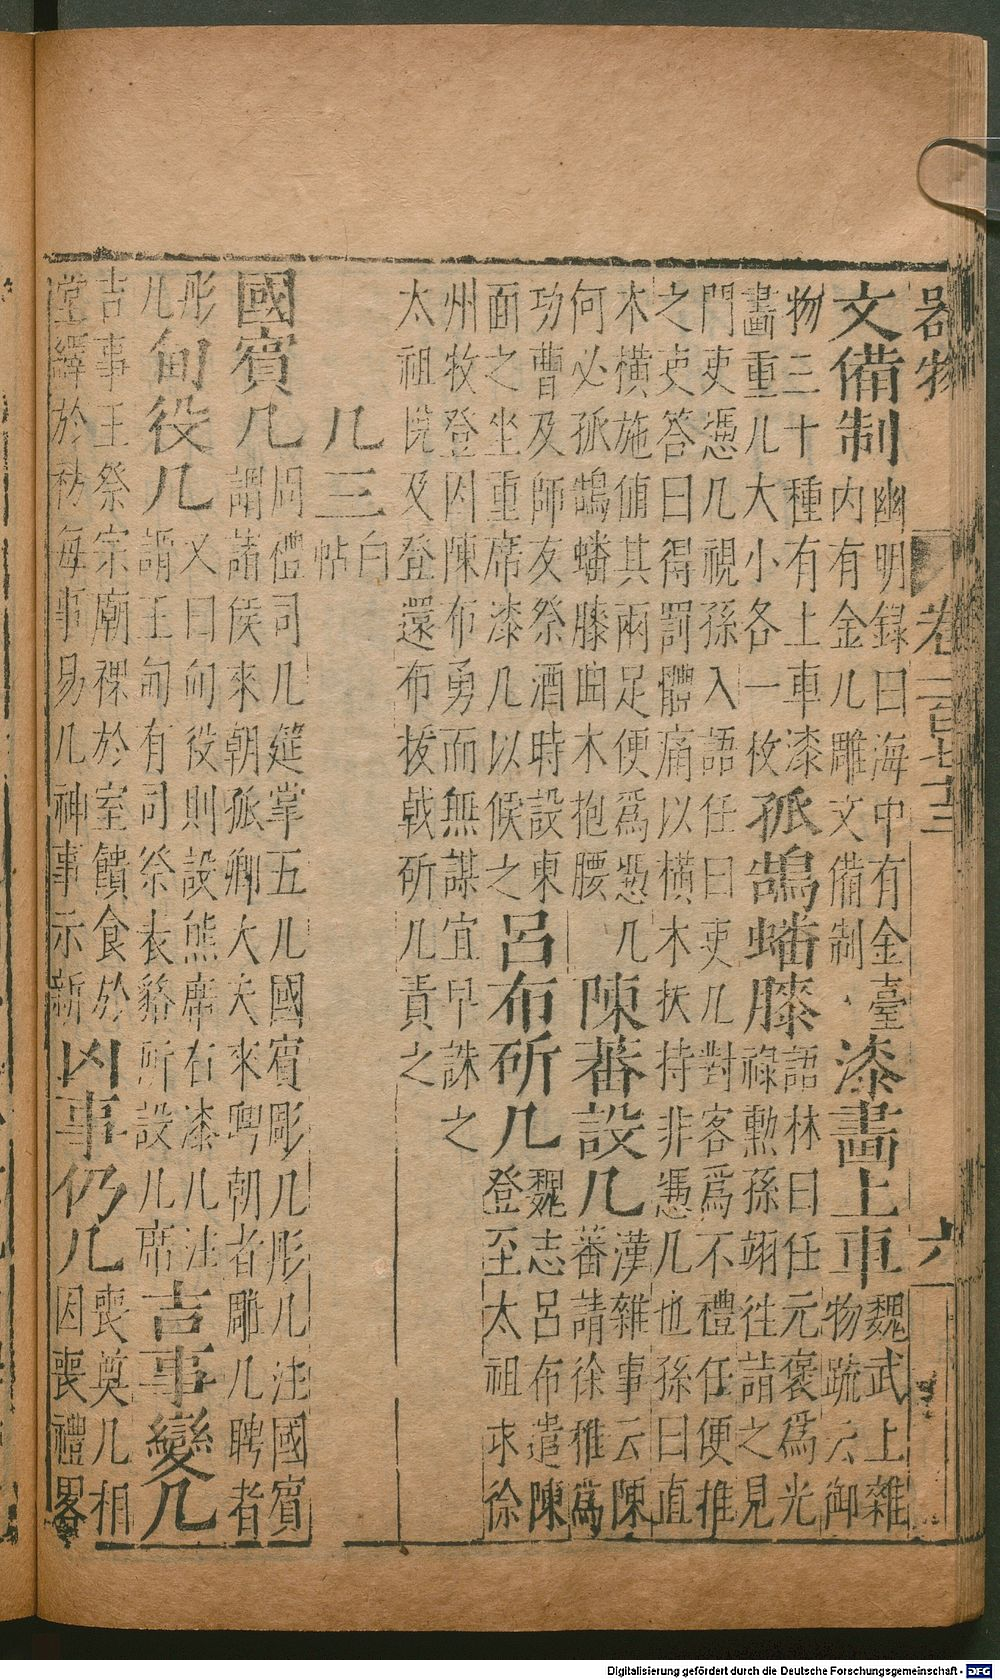 器物 卷二百七十三 六
文備制 幽明録曰海中有金臺
内有金几雕文備制 漆畫上車 魏武上雜
物䟽云御
物三十種有上車漆
畫重几大小各一枚 孤鵠蟠膝 語林曰任元褒為光
祿勲孫翊往詣之見
門吏憑几視孫入語任曰吏几對客為不禮任便推
之吏答曰得罰體痛以横木扶持非憑几也孫曰直
木横施俌其兩足便為憑几
何必孤鵠蟠膝曲木抱腰 陳蕃設几 漢雜事云陳
蕃請徐稚為
功曹及師友祭酒時設東
面之坐重席漆几以候之 呂布斫几 魏志呂布遣陳
登至太祖求徐
州牧登因陳布勇而無謀宜早誅之
太祖悅及登還布拔戟斫几責之
几三 白帖
國賓几 周禮司几筵掌五几國賓彫几彤几注國賓
謂諸侯來朝孤卿大夫來聘朝者雕几聘者
彤
几 甸役几 又曰甸役則設熊席右漆几注
謂王甸有司祭表貉所設几席 吉事變几
吉事王祭宗廟祼於室饋食於
堂繹於祊每事易几神事示新 凶事仍几 喪奠几相
因喪禮畧
Digitalisierung gefördert durch die Deutsche Forschungsgemeinschaft - DFG